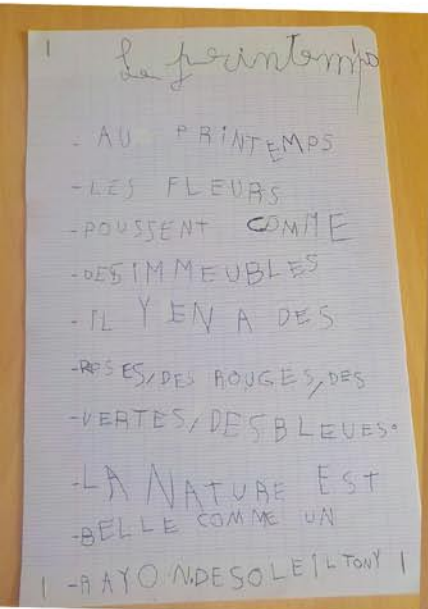 1
Le printemps
- AU PRiNTEMPS
- LES FLEURS
- POUSSENT COMME
- DES IMMEUBLES
- IL Y EN A DES
- ROSES, DES ROUGES, DES
- VERTES, DES BLEUES.
- LA NATURE EST
- BELLE COMME UN
1 - RAYON.DE SOLEIL TONY 1